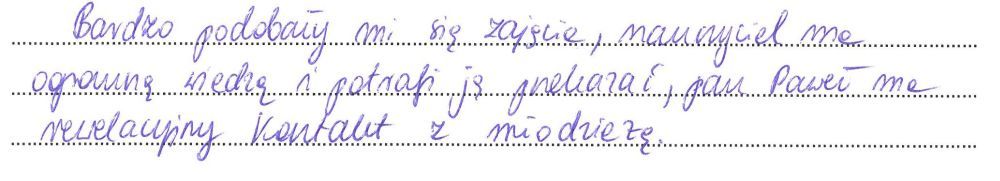 Bardzo podobały mi się zajęcia, nauczyciel ma
ogromną wiedzę i potrafi ją przekazać, pan Paweł ma
rewelacyjny kontakt z młodzieżą.